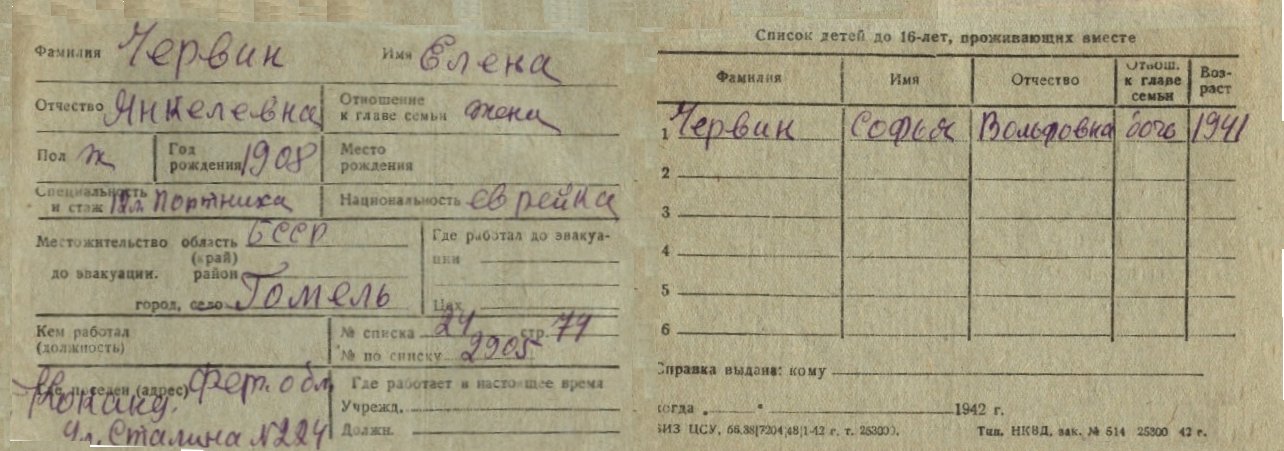 Фамилия Червин Имя Елена
Отчество Янкелевна Отношение к главе семьи жена
Пол ж Год рождения 1908 Место рождения
Специальность и стаж портниха Национальность еврейка
Местожительство до эвакуации. область (край) БССР
район
город, село Гомель
Где работал до эвакуации
Цех
Кем работал (должность)
№ списка 24 стр. 74
№ по списку 2905
Где поселен (адрес) Фер. обл
Коканд.
ул. Сталина N 224
Где работает в настоящее время
Учрежд.
Должн.
Список детей до 16-лет, проживающих вместе
Фамилия Имя Отчество Отнош. к главе семьи Возраст
1 Червин Софья Вольфовна дочь 1941
2
3
4
5
6
Справка выдана: кому
когда „ " 1942 г.
ЦСУ, 66.38|7204|48|1-42 г. т. 253000. Тип. НКВД, зак. № 514 25300 42 г.